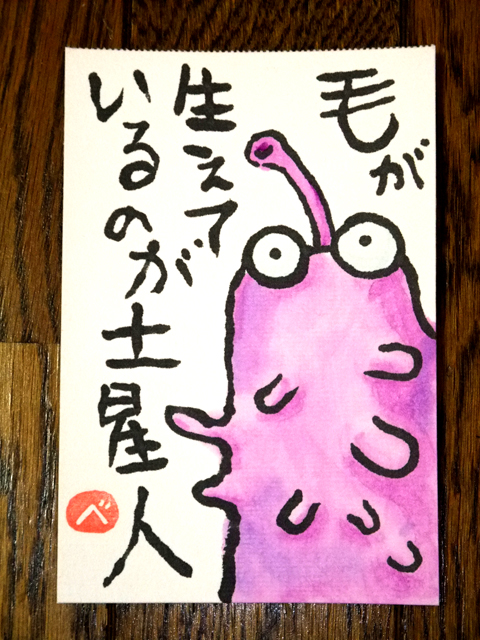 毛が
生えて
いるのが土星人
べ